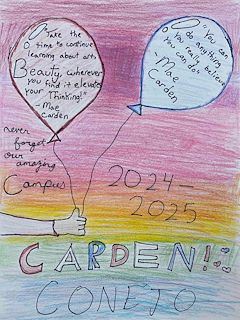 Take the
time to continue
learning about art,
Beauty, wherever
you find it elevates
your Thinking!"
- Mae
Carden
"You can
do anything
you really believe
you can do!"
- Mae
Carden
never
forget
our
amazing
Campus
2024-
2025
CARDEN!
CONEJO